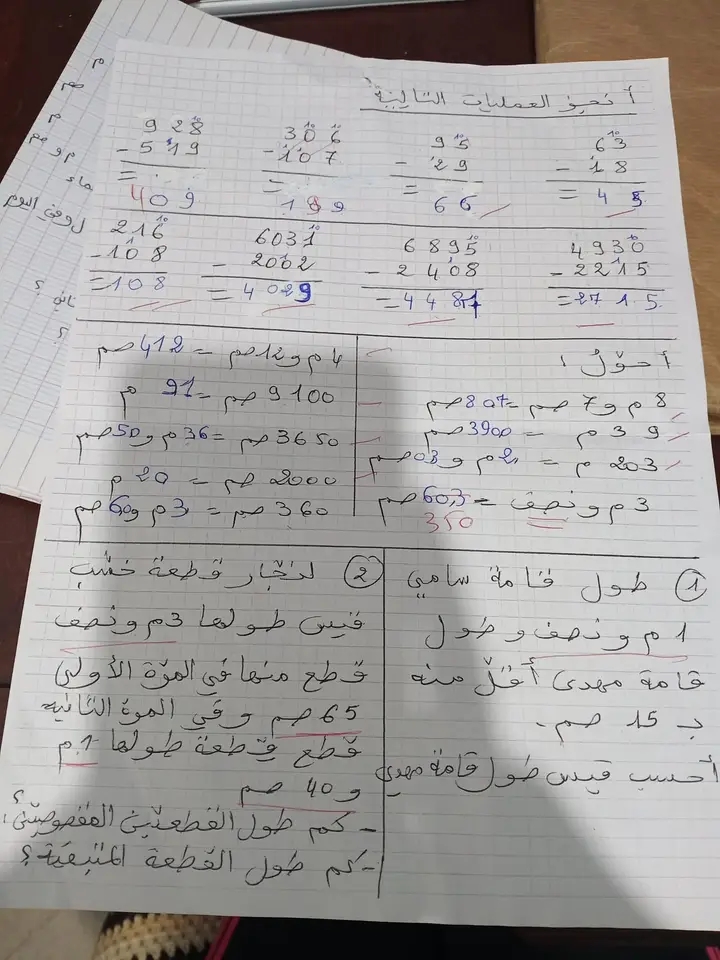 أ نجز العمليات التالية
63 - 18 = 45
95 - 29 = 66
306 - 107 = 199
928 - 519 = 409
4930 - 2215 = 2715
6895 - 2408 = 4487
6031 - 2002 = 4029
216 - 108 = 108
أحوّل :
8 م و 7 صم = 807 صم
39 م = 3900 صم
203 م = 2 م و 03 صم
3 م و نصف = 603 صم
350
4 م و 12 صم = 412 صم
9100 صم = 91 م
3650 صم = 36 م و 50 صم
2000 صم = 20 م
360 صم = 3 م و 60 صم
1 طول قامة سامي
1 م و نصف و طول
قامة مهدي أقلّ منه
بـ 15 صم.
أحسب قيس طول قامة مهدي
2 لنجّار قطعة خشب
قيس طولها 3 م و نصف
قطع منها في المرّة الأولى
65 صم و في المرة الثانية
قطع قطعة طولها 1 م
و 40 صم
- كم طول القطعتين المقصوصتين؟
- كم طول القطعة المتبقية؟